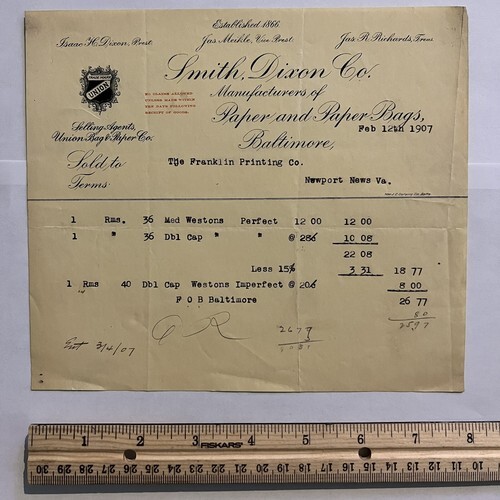 Established 1866.
Isaac H. Dixon, Prest. Jas Meikle, Vice Prest. Jas R. Richards, Treas.
Smith, Dixon Co.
Manufacturers of
Paper and Paper Bags,
UNION
NO CLAIMS ALLOWED
UNLESS MADE WITHIN
FIVE DAYS FOLLOWING
RECEIPT OF GOODS.
Selling Agents,
Union Bag & Paper Co.
Baltimore, Feb 12th 1907
Sold to The Franklin Printing Co.
Terms Newport News Va.
1 Rms. 36 Med Westons Perfect 12 00 12 00
1 " 36 Dbl Cap " " @ 286 10 08
22 08
Less 15% 3 31 18 77
1 Rms 40 Dbl Cap Westons Imperfect @ 206 8 00
F O B Baltimore 26 77
80
2597
Ent 3/4/07
FISKARS
1 2 3 4 5 6 7 8
30 29 28 27 26 25 24 23 22 21 20 19 18 17 16 15 14 13 12 11 10